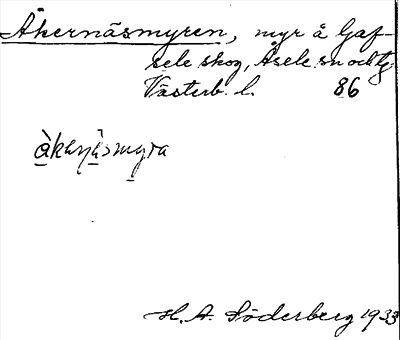 Åkernäsmyren, myr å Gaf-
sele skog, Åsele sn och tg.
Västerb. l. 86
àkaṇäsmyra
H. A. Söderberg 1933